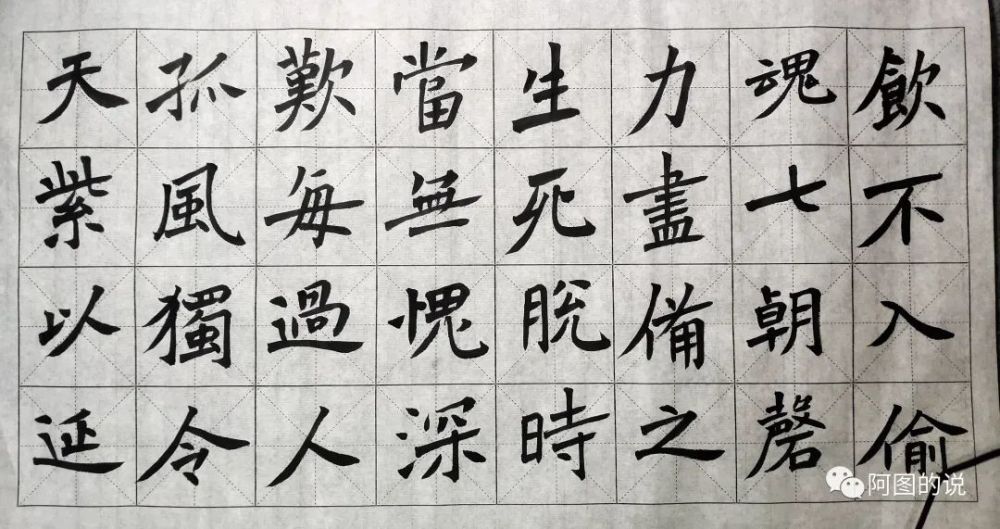 飲不入偷
魂七朝磬
力盡備之
生死脫時
當無愧深
歎每過人
孤風獨令
天紫以延
阿图的说